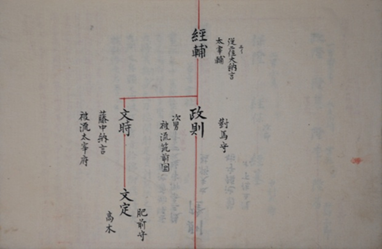 經輔
從二位大納言
太宰權帥
政則
對馬守
次男
被流筑前國
文時
藤中納言
被流太宰府
文定
肥前守
高木